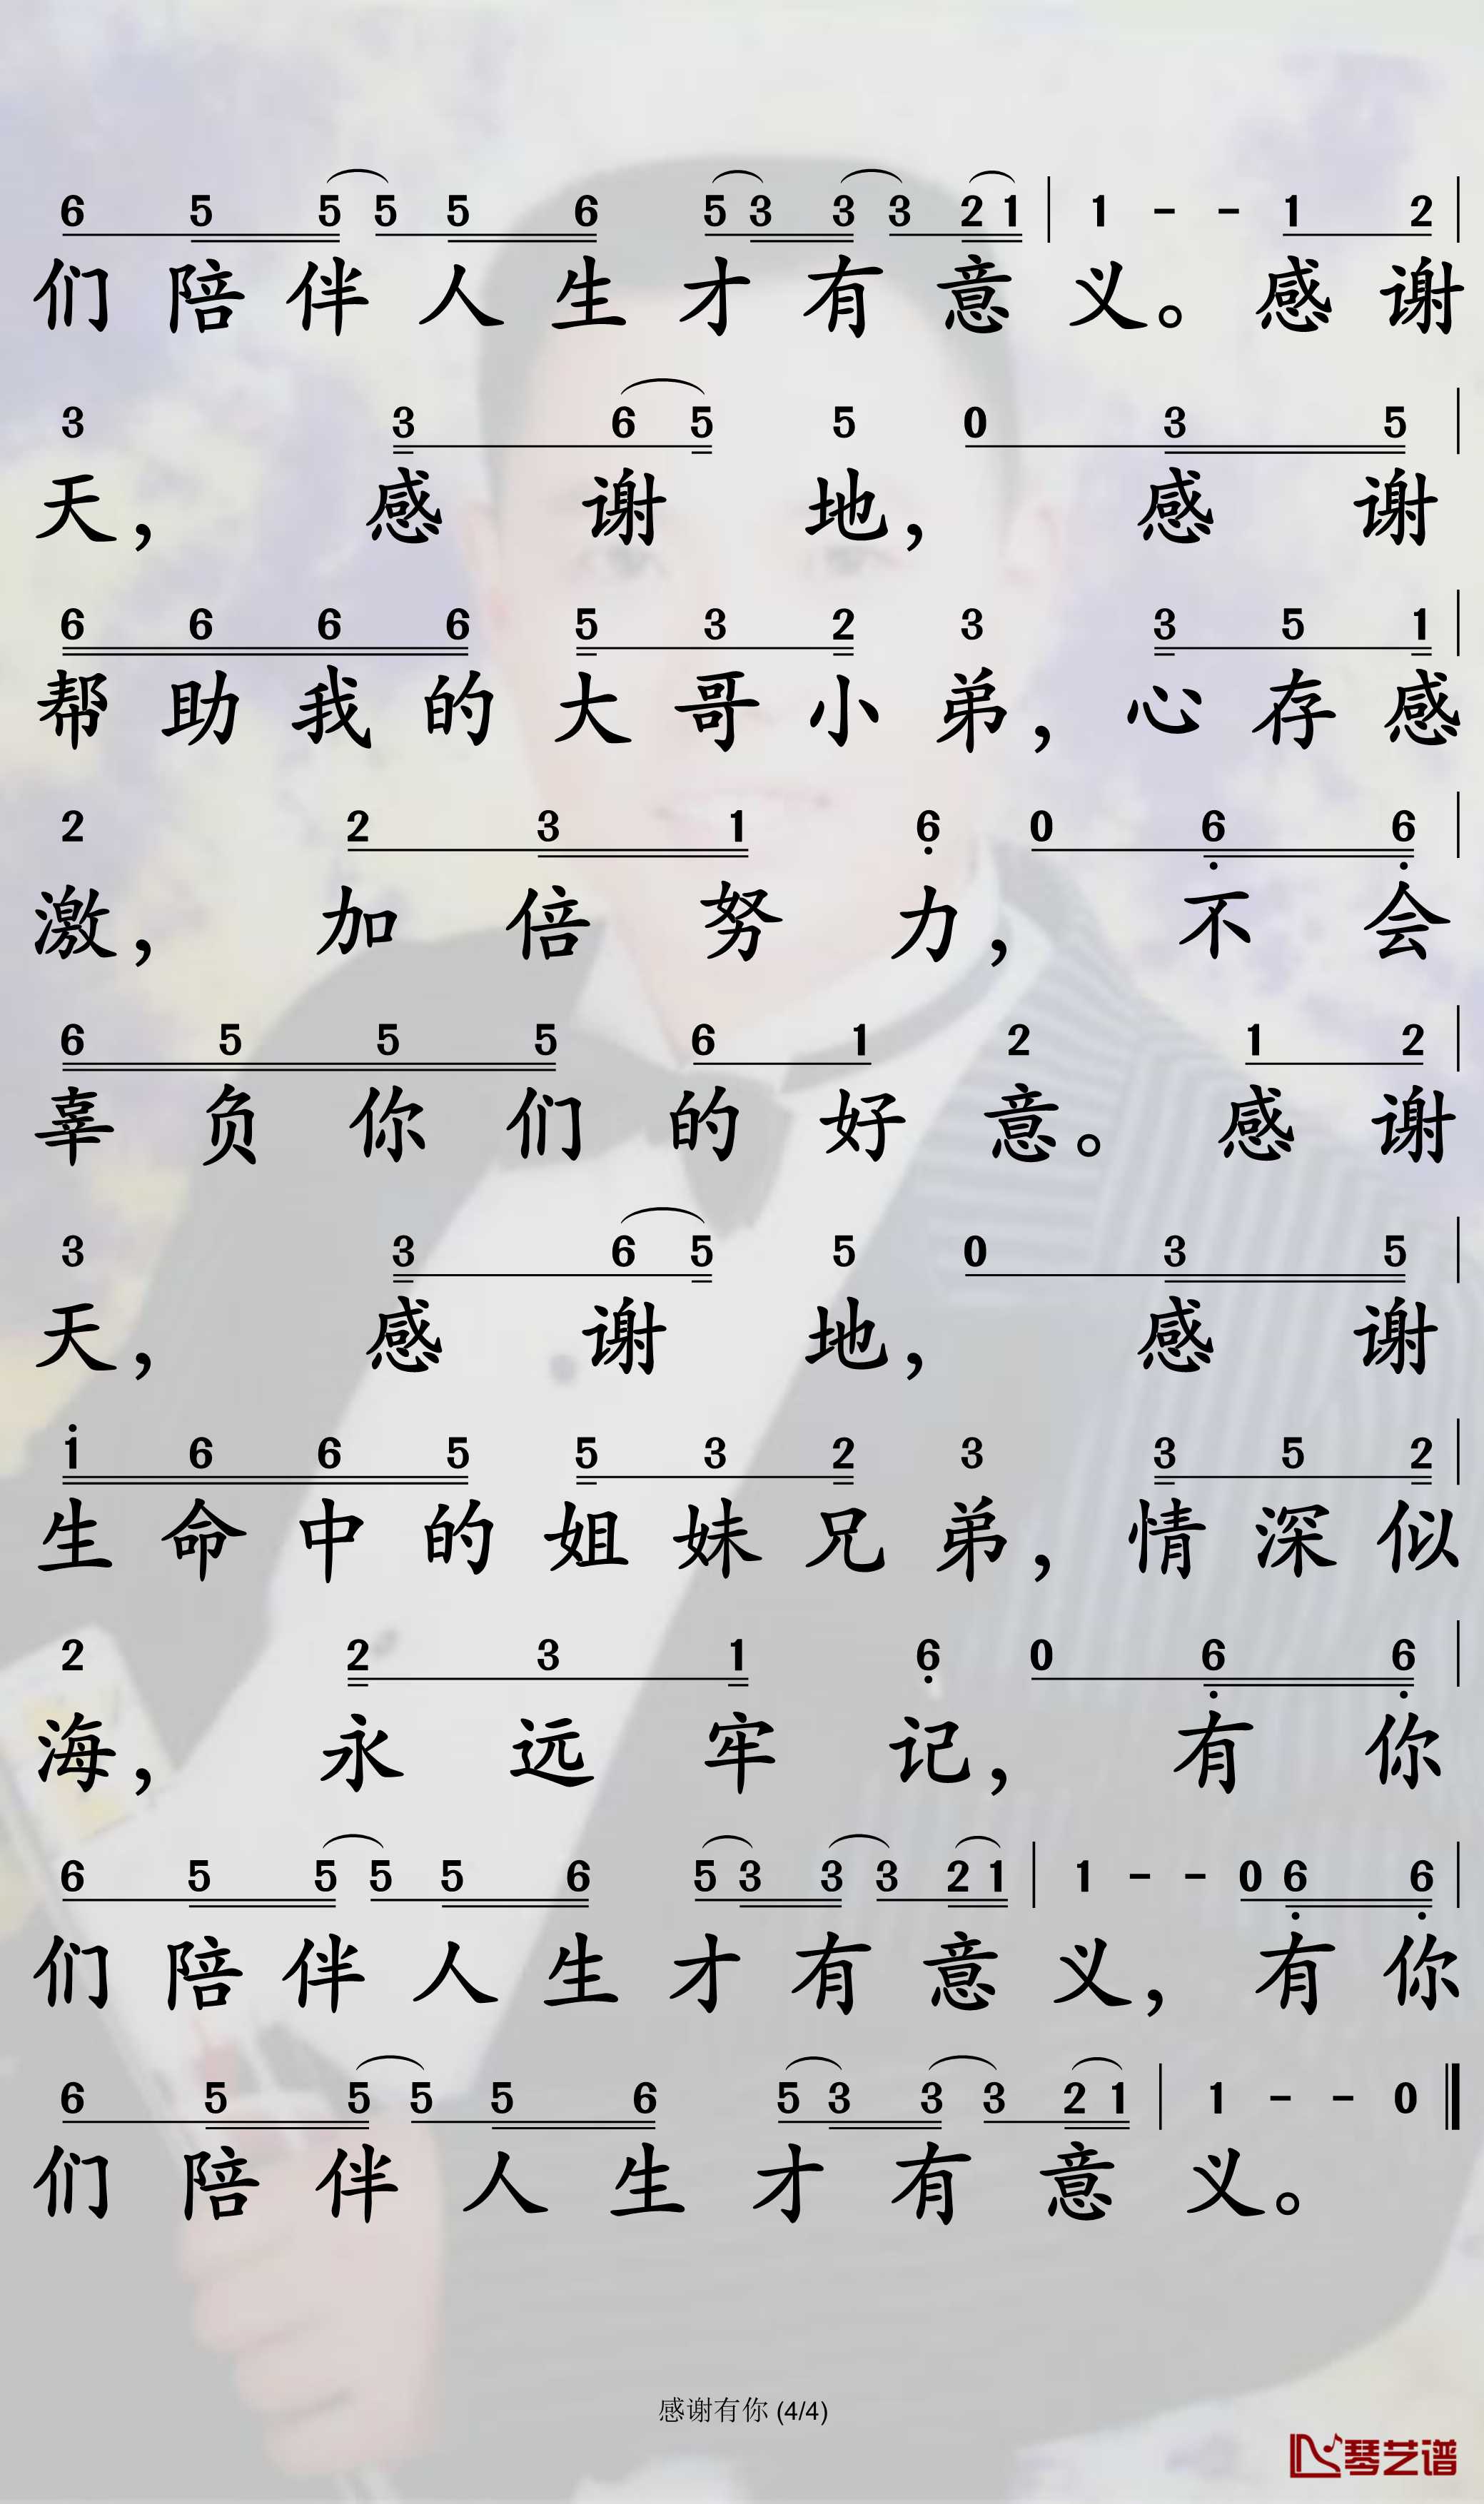 6 5 5 5 5 6 5 3 3 3 2 1 | 1 - - 1 2 |
们 陪 伴 人 生 才 有 意 义。 感 谢
3 3 6 5 5 0 3 5 |
天, 感 谢 地, 感 谢
6 6 6 6 5 3 2 3 3 5 1 |
帮 助 我 的 大 哥 小 弟, 心 存 感
2 2 3 1 6̣ 0 6̣ 6̣ |
激, 加 倍 努 力, 不 会
6 5 5 5 6 1 2 1 2 |
辜 负 你 们 的 好 意。 感 谢
3 3 6 5 5 0 3 5 |
天, 感 谢 地, 感 谢
1̇ 6 6 5 5 3 2 3 3 5 2 |
生 命 中 的 姐 妹 兄 弟, 情 深 似
2 2 3 1 6̣ 0 6̣ 6̣ |
海, 永 远 牢 记, 有 你
6 5 5 5 5 6 5 3 3 3 2 1 | 1 - - 0 6̣ 6̣ |
们 陪 伴 人 生 才 有 意 义, 有 你
6 5 5 5 5 6 5 3 3 3 2 1 | 1 - - 0 ‖
们 陪 伴 人 生 才 有 意 义。
感谢有你 (4/4)
琴艺谱